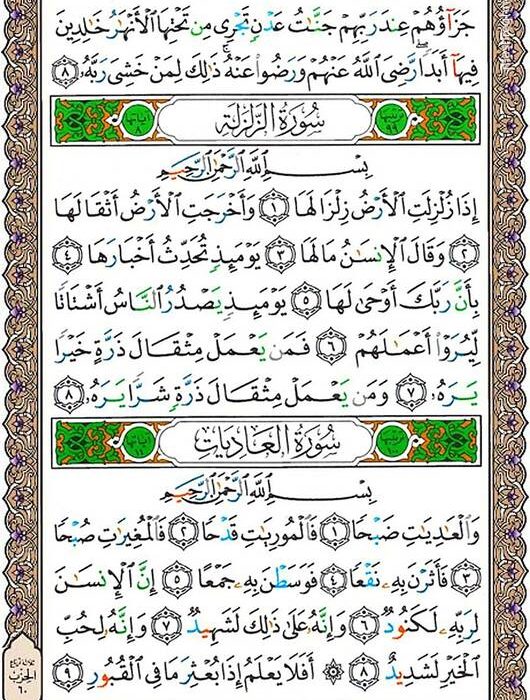 جَزَآؤُهُمْ عِندَ رَبِّهِمْ جَنَّٰتُ عَدْنٍ تَجْرِى مِن تَحْتِهَا ٱلْأَنْهَٰرُ خَٰلِدِينَ
فِيهَآ أَبَدًا ۖ رَّضِىَ ٱللَّهُ عَنْهُمْ وَرَضُوا۟ عَنْهُ ۚ ذَٰلِكَ لِمَنْ خَشِىَ رَبَّهُۥ ٨
ترتيبها ٩٩ سُورَةُ الزَّلْزَلَةِ آياتها ٨
بِسْمِ ٱللَّهِ ٱلرَّحْمَٰنِ ٱلرَّحِيمِ
إِذَا زُلْزِلَتِ ٱلْأَرْضُ زِلْزَالَهَا ١ وَأَخْرَجَتِ ٱلْأَرْضُ أَثْقَالَهَا
٢ وَقَالَ ٱلْإِنسَٰنُ مَا لَهَا ٣ يَوْمَئِذٍ تُحَدِّثُ أَخْبَارَهَا ٤
بِأَنَّ رَبَّكَ أَوْحَىٰ لَهَا ٥ يَوْمَئِذٍ يَصْدُرُ ٱلنَّاسُ أَشْتَاتًا
لِّيُرَوْا۟ أَعْمَٰلَهُمْ ٦ فَمَن يَعْمَلْ مِثْقَالَ ذَرَّةٍ خَيْرًا
يَرَهُۥ ٧ وَمَن يَعْمَلْ مِثْقَالَ ذَرَّةٍ شَرًّا يَرَهُۥ ٨
ترتيبها سُورَةُ العَادِيَاتِ آياتها ١١
بِسْمِ ٱللَّهِ ٱلرَّحْمَٰنِ ٱلرَّحِيمِ
وَٱلْعَٰدِيَٰتِ ضَبْحًا ١ فَٱلْمُورِيَٰتِ قَدْحًا ٢ فَٱلْمُغِيرَٰتِ صُبْحًا
٣ فَأَثَرْنَ بِهِۦ نَقْعًا ٤ فَوَسَطْنَ بِهِۦ جَمْعًا ٥ إِنَّ ٱلْإِنسَٰنَ
لِرَبِّهِۦ لَكَنُودٌ ٦ وَإِنَّهُۥ عَلَىٰ ذَٰلِكَ لَشَهِيدٌ ٧ وَإِنَّهُۥ لِحُبِّ
ٱلْخَيْرِ لَشَدِيدٌ ٨ ۞ أَفَلَا يَعْلَمُ إِذَا بُعْثِرَ مَا فِى ٱلْقُبُورِ ٩
ثلاثة أرباع
الحزب
٦٠